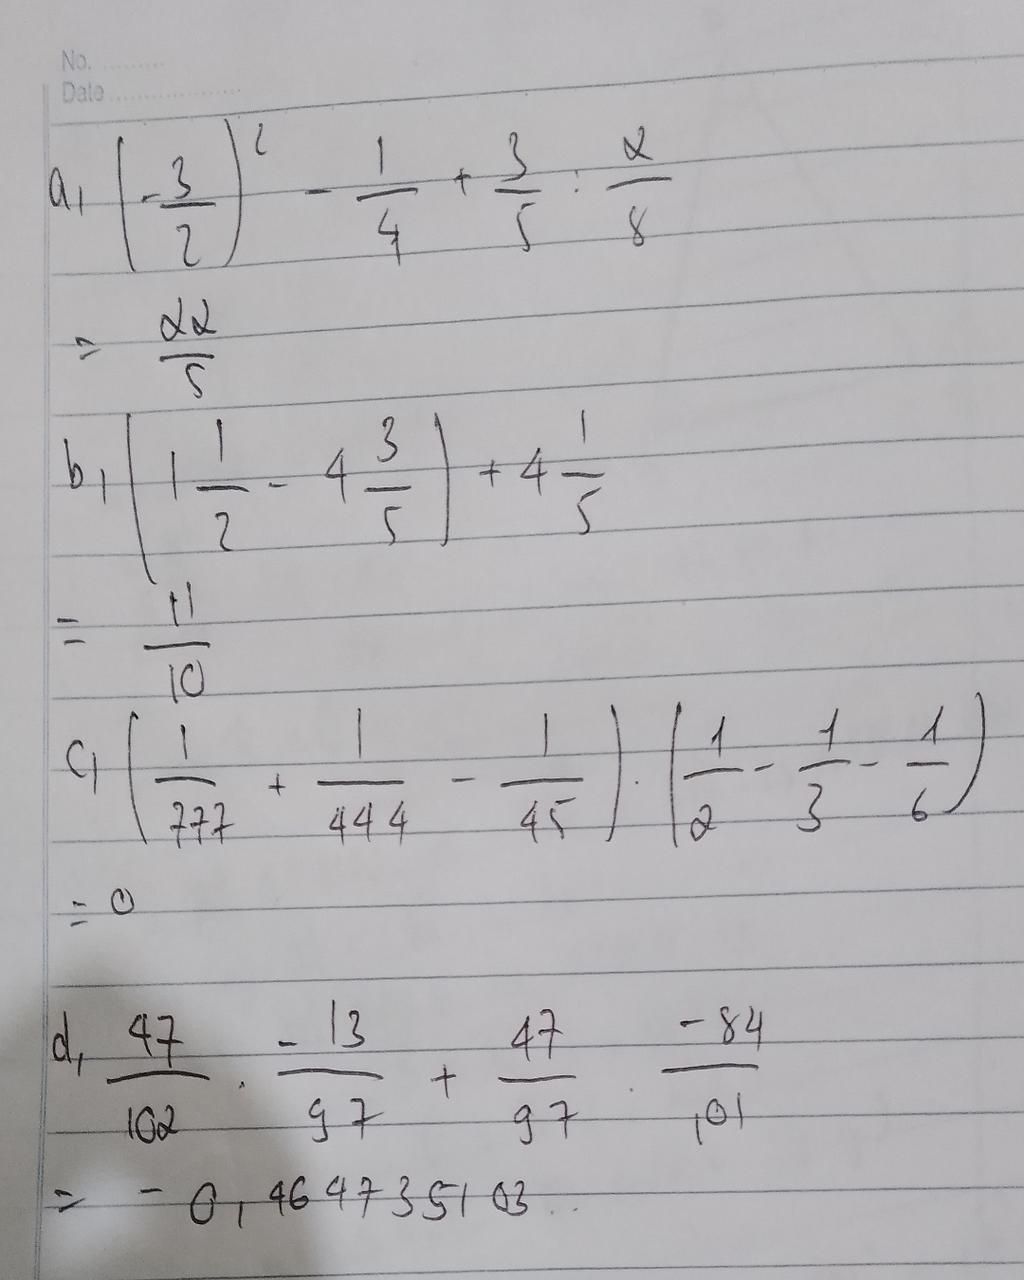 No. ..........
Date ....................
a, (-3/2)² - 1/4 + 3/5 : 2/8
= 22/5
b, (1 1/2 - 4 3/5) + 4 1/5
= 11/10
c, (1/777 + 1/444 - 1/45) . (1/2 - 1/3 - 1/6)
= 0
d, 47/102 . -13/97 + 47/97 . -84/101
= -0,464735103..